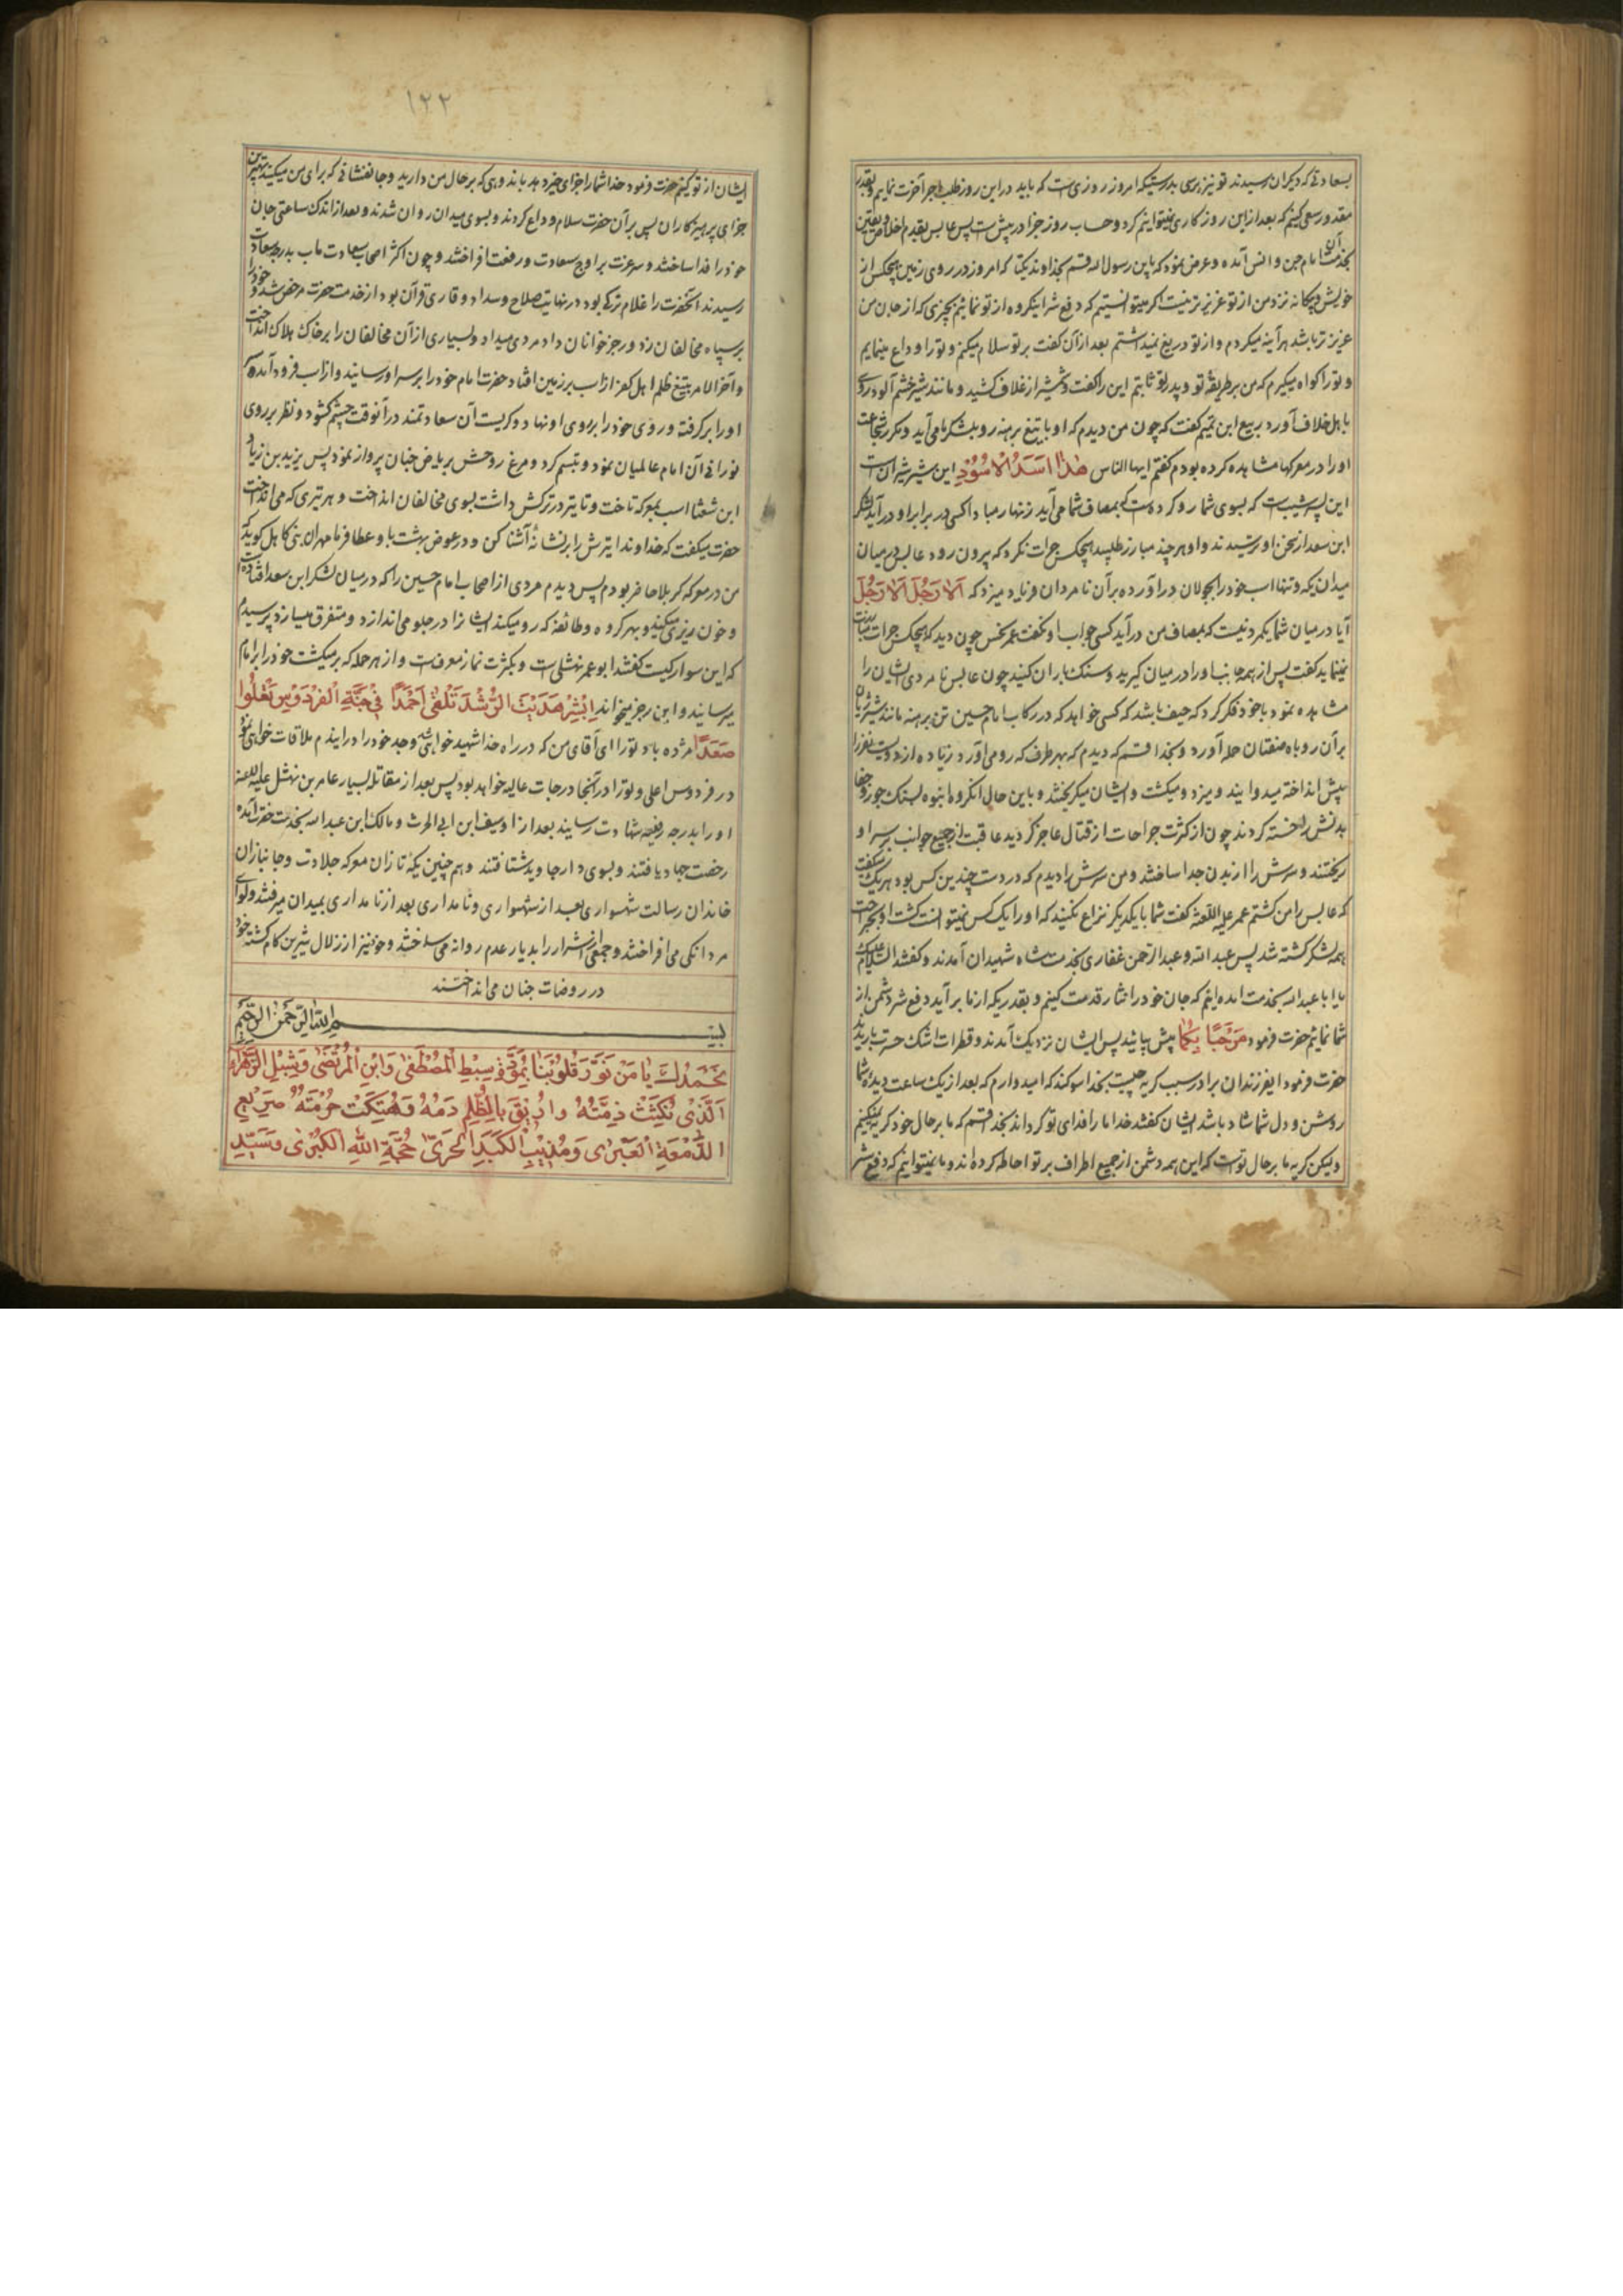 بسعادتی که دیکران رسیدند تو نیز برسی بدرستیکه امروز روزی است که باید در این روز طلب اجر آخرت نمایم و بقدر
مقدور سعی کنیم که بعد از این روز کاری نمیتوانیم کرد و حساب روز جزا در پیش است پس عابس بقدم اخلاص و یقین
بخدمت آن امام جن و انس آمده و عرض نمود که یابن رسول الله قسم بخداوند یکتا که امروز در روی زمین هیچکس از
خویش و بیکانه نزد من از تو عزیزتر نیست اکر میتوانستیم که دفع شر اینکروه از تو نمائیم بچیزی که از جان من
عزیزتر باشد هر آینه میکردم و از تو دریغ نمیداشتم بعد از آن کفت بر تو سلام میکنم و تو را وداع مینمایم
و تو را کواه میکیرم که من بر طریقهٔ تو و پدر تو ثابتم این را کفت و شمشیر از غلاف کشید و مانند شیر خشم آلود روی
باهل خلاف آورد ربیع ابن تمیم کفت که چون من دیدم که او با تیغ برهنه رو بلشکر ما می آید و مکرر شجاعت
او را در معرکها مشاهده کرده بودم کفتم ایها الناس هٰذا اَسَدُ الاُسُوْدِ این شیر شیران است
این پسر شبیب است که بسوی شما رو کرده است که بمصاف شما می آید زنهار مبادا کسی در برابر او در آید لشکر
ابن سعد از سخن او ترسیدند و او هر چند مبارز طلبید هیچکس جرات نکرد که بیرون رود عابس در میان
میدان یکه و تنها اسب خود را بجولان در آورده بر آن نامردان فریاد میزد که اَلاٰ رَجُلْ اَلاٰ رَجُلْ
آیا در میان شما یکمرد نیست که بمصاف من در آید کسی جواب او نکفت عمر نحس چون دید که هیچکس جرات مبارزت
نمینماید کفت پس از همه جانب او را در میان کیرید و سنک باران کنید چون عابس نامردی ایشان را
مشاهده نمود با خود فکر کرد که حیف باشد که کسی خواهد که در رکاب امام حسین تن برهنه مانند شیر ژیان
بر آن روباه صفتان حمله آورد و بخدا قسم که دیدم که بهر طرف که رو می آورد زیاده از دویست نفر را
پیش انداخته میدوانید و میزد و میکشت و ایشان میکریختند و با این حال انکروه انبوه بسنک جور و جفا
بدنش را خسته کردند چون از کثرت جراحات از قتال عاجز کردید عاقبت از جمیع جوانب بر سر او
ریختند و سرش را از بدن جدا ساختند و من سرش را دیدم که در دست چندین کس بود هر یک میکفت
که عابس را من کشتم عمر علیه اللعنه کفت شما با یکدیکر نزاع نکنید که او را یک کس نمیتوانست کشت او بجراحت
همه لشکر کشته شد پس عبدالله و عبدالرحمن غفاری بخدمت شاه شهیدان آمدند و کفتند السلام علیک
یا ابا عبدالله بخدمت آمده ایم که جان خود را نثار قدمت کنیم و بقدریکه از ما برآید دفع شر دشمن از
شما نمائیم حضرت فرمود مَرْحَبًا بِکُمٰا پیش بیائید پس ایشان نزدیک آمدند و قطرات اشک حسرت باریدند
حضرت فرمود ایفرزندان برادر سبب کریه چیست بخدا سوکند که امیدوارم که بعد از یک ساعت دیدهٔ شما
روشن و دل شما شاد باشد ایشان کفتند خدا ما را فدای تو کرداند بخدا قسم که ما بر حال خود کریه نمیکنیم
ولیکن کریه ما بر حال تو است که این همه دشمن از جمیع اطراف بر تو احاطه کرده اند و ما نمیتوانیم که دفع شر
۱۲۲
ایشان از تو کنیم حضرت فرمود خدا شما را جزای خیر دهد باندوهی که بر حال من دارید و جانفشانی که برای من میکنید بهترین
جزای پرهیزکاران پس بر آن حضرت سلام و داع کردند و بسوی میدان روان شدند و بعد از اندک ساعتی جان
خود را فدا ساختند و سر عزت بر اوج سعادت و رفعت افراختند و چون اکثر اصحاب سعادت ماب بدرجه سعادت
رسیدند انحضرت را غلام ترکی بود در نهایت صلاح و سداد و قاری قرآن بود از خدمت حضرت مرخص شد و خود را
بر سپاه مخالفان زد و رجز خوانان داد مردی میداد و بسیاری از آن مخالفان را بر خاک هلاک انداخت
و آخر الامر بتیغ ظلم اهل کفر از اسب بر زمین افتاد حضرت امام خود را بر سر او رسانید و از اسب فرود آمده سر
او را بر کرفته و روی خود را بر روی او نهاد و کریست آن سعادتمند در آنوقت چشم کشود و نظر بر روی
نورانی آن امام عالمیان نمود و تبسم کرد و مرغ روحش بریاض جنان پرواز نمود پس یزید بن زیاد
ابن شعثا اسب بمعرکه تاخت و تا تیر در ترکش داشت بسوی مخالفان انداخت و هر تیری که می انداخت
حضرت میکفت که خداوندا تیرش را بر نشانه آشنا کن و در عوض بهشت باو عطا فرما مهران بنی کاهل کوید که
من در معرکه کربلا حاضر بودم پس دیدم مردی از اصحاب امام حسین را که در میان لشکر ابن سعد افتاده
و خون ریزی میکنید و بهر کروه و طائفه که رو میکند ایشانرا در جلو می اندازد و متفرق میسازد پرسیدم
که این سوار کیست کفتند ابو عمر نهشلی است و بکثرت نماز معروفست و از هر حمله که بر میکشت خود را بامام
میرسانید و این رجز میخواند اِبْشِرْ هُدَیْتَ الرُّشْدَ تَلْقیٰ اَحْمَدًا فِیْ جَنَّةِ الْفِرْدَوْسِ تَعْلُوا
صَعَدًا مژده باد تو را ای آقای من که در راه خدا شهید خواهی شد و جد خود را در ایندم ملاقات خواهی نمود
در فردوس اعلی و تو را در آنجا درجات عالیه خواهد بود پس بعد از مقاتله بسیار عامر بن نهشل علیه اللعنه
او را بدرجه رفیعه شهادت رسانید بعد از او سیف ابن ابی الحرث و مالک ابن عبدالله بخدمت حضرت آمده
رخصت جهاد یافتند و بسوی دار جاوید شتافتند و هم چنین یکه تازان معرکه جلادت و جانبازان
خاندان رسالت شهسواری بعد از شهسواری و نامداری بعد از نامداری بمیدان میرفتند و لوای
مردانکی می افراختند و جمعی از اشرار را بدیار عدم روانه می ساختند و خود نیز از زلال شیرین کام کشته خود
در روضات جنان می انداختند
بسم الله الرحمن الرحیم
نَحْمَدُكَ یٰا مَنْ نَوَّرَ قُلُوْبَنٰا بِمَوَدَّةِ سِبْطِ الْمُصْطَفیٰ وَابْنِ الْمُرْتَضیٰ وَشِبْلِ الزَّهْرٰاءِ
اَلَّذِیْ نُکِثَتْ ذِمَّتُهُ وَاُرِیْقَ بِالظُّلْمِ دَمُهُ وَهُتِکَتْ حُرْمَتُهُ صَرِیْعِ
الدَّمْعَةِ الْعَبْرٰی وَمُذِیْبِ الْکَبَدِ الْحَرّیٰ حُجَّةِ اللّٰهِ الْکُبْرٰی وَسَیِّدِ